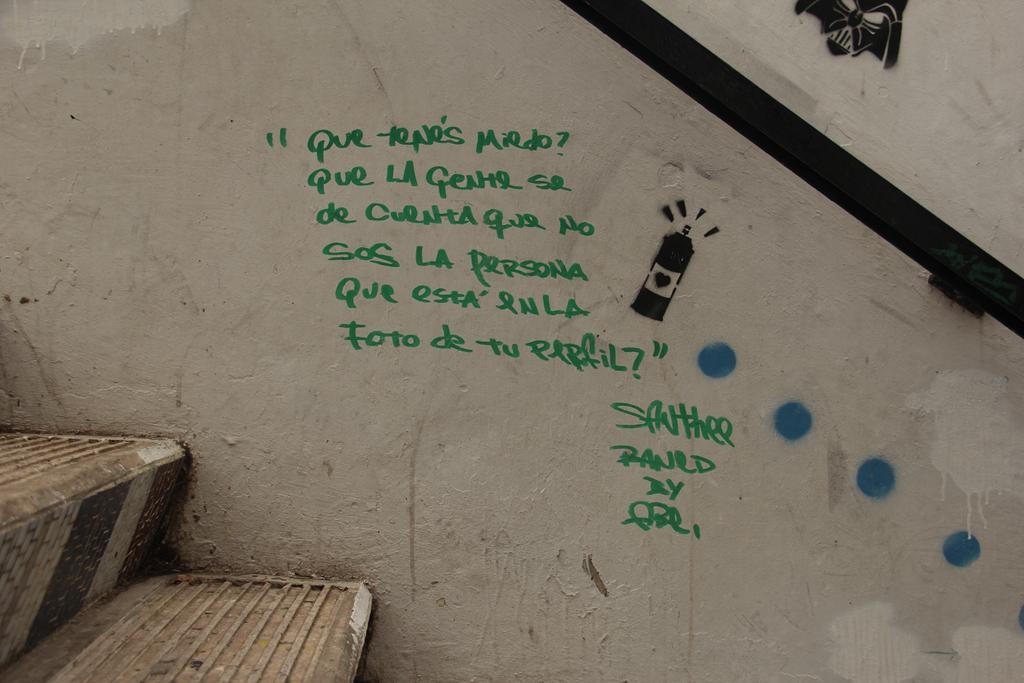 "Que tenés miedo?
que la gente se
de cuenta que no
sos la persona
que está en la
foto de tu perfil?"
BY